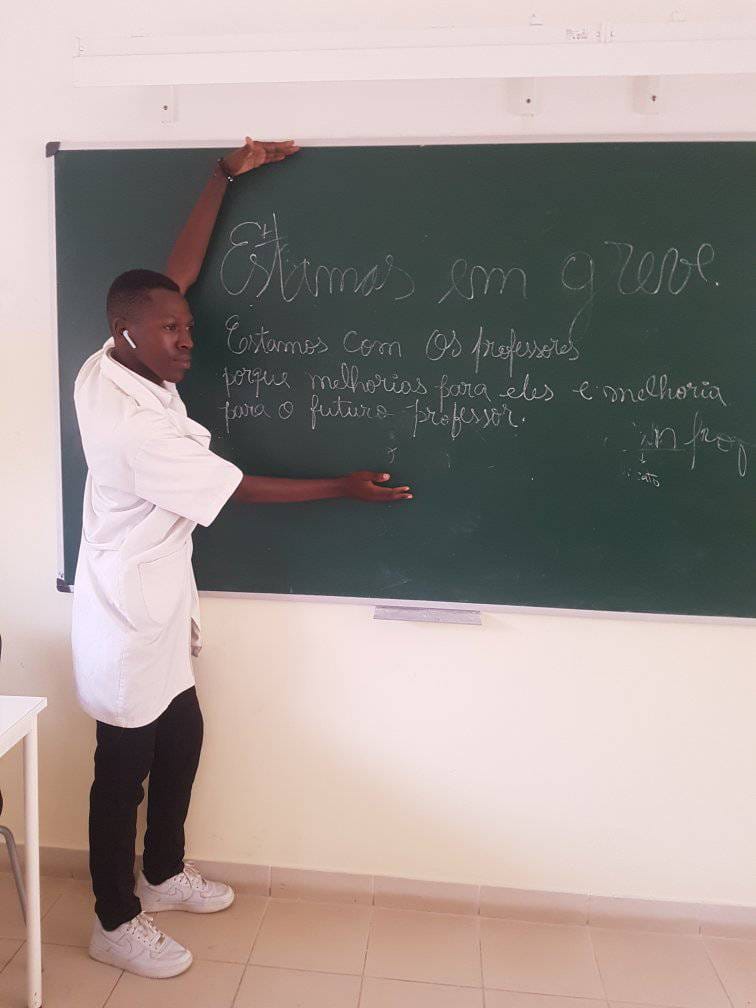 Estamos em greve.
Estamos com os professores
porque melhorias para eles e melhoria
para o futuro professor.